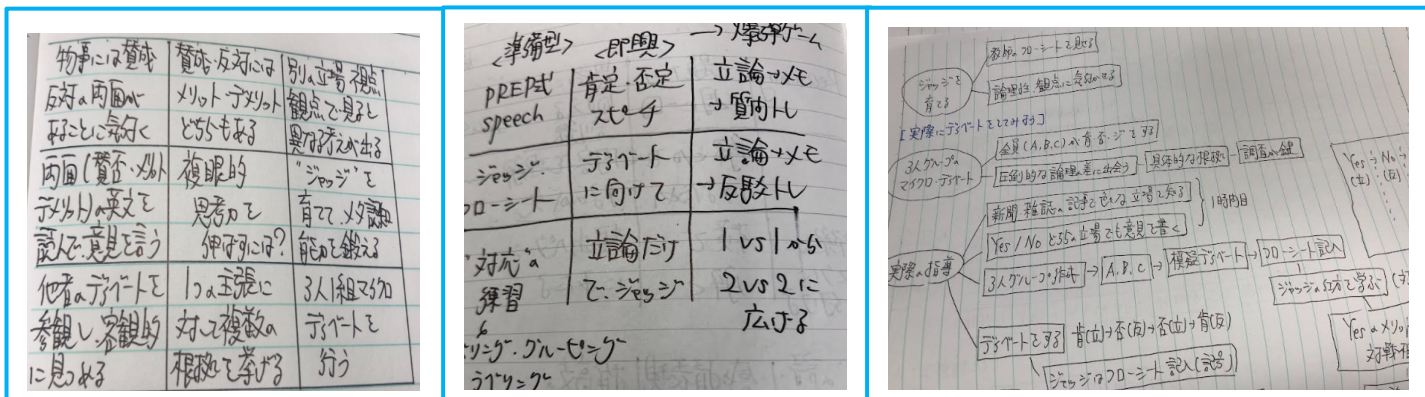 物事には賛成
反対の両面が
あることに気付く
賛成・反対には
メリット・デメリット
どちらもある
別の立場・視点
観点で見ると
異なる考えが出る
両面(賛否・メリット
デメリット)の英文を
読んで意見を言う
複眼的
思考力を
伸ばすには?
"ジャッジ"を
育てて、メタ認知
能力を鍛える
他者のディベートを
参観し、客観的
に見つめる
1つの主張に
対して複数の
根拠を挙げる
3人1組マイクロ
ディベートを
行う
<準備型>
<即興>
→爆弾ゲーム
PREP式
speech
肯定・否定
スピーチ
立論→メモ
→質問トレ
ジャッジ・
フローシート
ディベート
に向けて
立論→メモ
→反駁トレ
"対応"の
練習
立論だけ
で、ジャッジ
1 vs 1から
2 vs 2に
広げる
グルーピング
教師のフローシートを見せる
ジャッジを
育てる
論理性、観点に気付かせる
[実際にディベートをしてみよう]
3人グループの
マイクロ・ディベート
全員(A,B,C)が肯・否・ジをする
圧倒的な論理の差に出会う
具体的な根拠
調査が鍵
実際の指導
Yes / Noどちらの立場でも意見を書く
1時間目
3人グループ作成
→A,B,C
→模擬ディベート
→フローシート記入
ジャッジの仕方を学ぶ
ディベートをする
肯(立)→否(反)→否(立)→肯(反)
ジャッジはフローシート記入(記号)
Yes
No
(立)
(反)
Yesのメリット